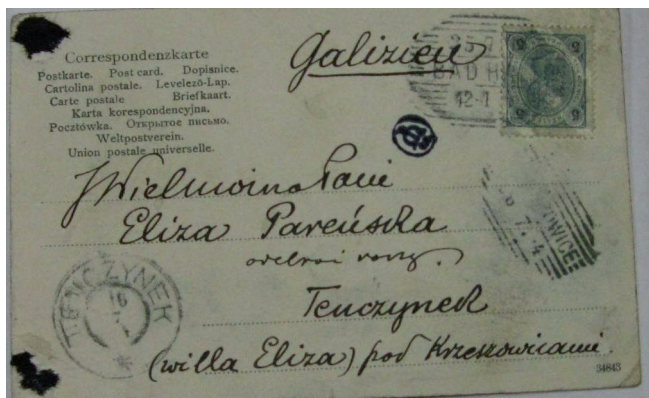 Correspondenzkarte
Postkarte. Post card. Dopisnice.
Cartolina postale. Levelező-Lap.
Carte postale Briefkaart.
Karta korespondencyjna.
Pocztówka. Открытое письмо.
Weltpostverein.
Union postale universelle.
Galizien
25 7
BAD H
12-1
Wielmożna Pani
Eliza Pareńska
Tenczynek
(willa Eliza) pod Krzeszowicami.
TENCZYNEK
16
OWICE
7 4
34843